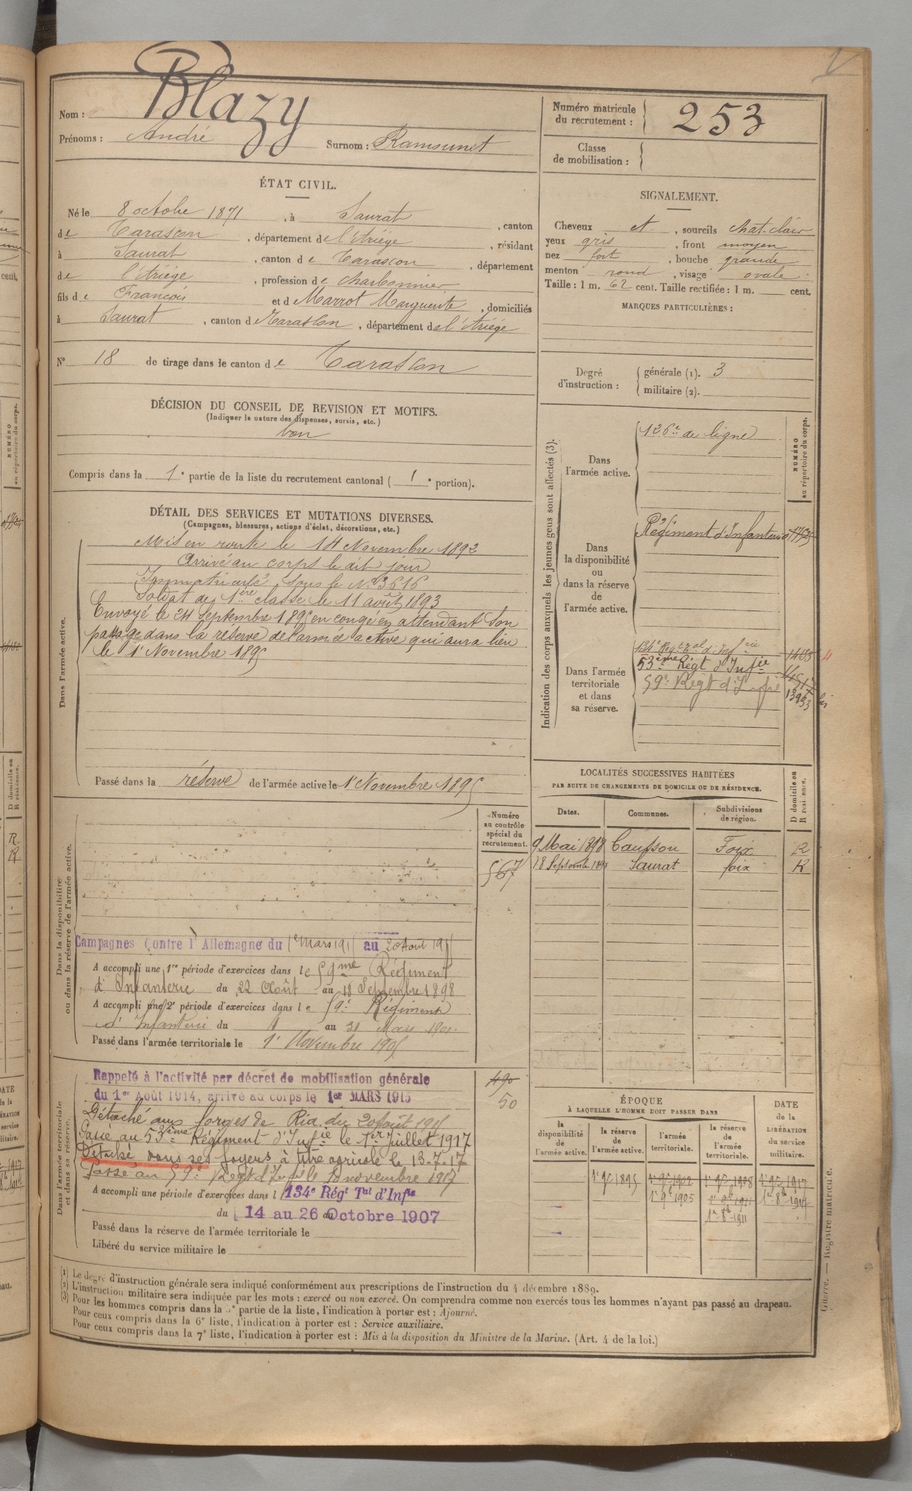 Nom : Blazy
Prénoms : André Surnom : Ramounet
Numéro matricule du recrutement : 253
Classe de mobilisation :
ÉTAT CIVIL.
Né le 8 octobre 1871, à Saurat, canton
de Tarascon, département de l'Ariège, résidant
à Saurat, canton de Tarascon, département
de l'Ariège, profession de charbonnier
fils de François et de Marrot Marguerite, domiciliés
à Saurat, canton de Tarascon, département de l'Ariège
N° 18 de tirage dans le canton de Tarascon
SIGNALEMENT.
Cheveux et, sourcils chat. clair
yeux gris, front moyen
nez fort, bouche grande
menton rond, visage ovale
Taille : 1 m. 62 cent. Taille rectifiée : 1 m. cent.
MARQUES PARTICULIÈRES :
Degré d'instruction : générale (1). 3
militaire (2).
DÉCISION DU CONSEIL DE REVISION ET MOTIFS.
(Indiquer la nature des dispenses, sursis, etc.)
bon
Compris dans la 1e partie de la liste du recrutement cantonal ( 1e portion).
DÉTAIL DES SERVICES ET MUTATIONS DIVERSES.
(Campagnes, blessures, actions d'éclat, décorations, etc.)
Dans l'armée active.
Mis en route le 14 Novembre 1892
Arrivé au corps le dit jour
Immatriculé sous le N° 3616
Soldat de 1ère classe le 11 août 1893
Envoyé le 24 Septembre 1895 en congé en attendant son
passage dans la réserve de l'armée active qui aura lieu
le 1er Novembre 1895
Passé dans la réserve de l'armée active le 1er Novembre 1895
Indication des corps auxquels les jeunes gens sont affectés (3).
NUMÉRO au répertoire du corps.
Dans l'armée active.
126e de ligne
Dans la disponibilité ou dans la réserve de l'armée active.
Régiment d'Infanterie
Dans l'armée territoriale et dans sa réserve.
53ème Régt d'Infie
59e Régt d'Infie
LOCALITÉS SUCCESSIVES HABITÉES
PAR SUITE DE CHANGEMENTS DE DOMICILE OU DE RÉSIDENCE.
Dates. Communes. Subdivisions de région. D domicile ou R résidence.
9 Mai 1898 Caussou Foix R
18 Septembre Saurat foix R
Dans la disponibilité ou dans la réserve de l'armée active.
Numéro au contrôle spécial du recrutement.
567
Campagnes contre l'Allemagne du 1er Mars 1915 au 20 Août 1915
A accompli une 1re période d'exercices dans le 59me Régiment
d'Infanterie du 22 Août au 18 Septembre 1898
A accompli une 2e période d'exercices dans le 59e Régiment
d'Infanterie du 4 au 31 Mars
Passé dans l'armée territoriale le 1er Novembre 1905
Dans l'armée territoriale et dans sa réserve.
490
50
Rappelé à l'activité par décret de mobilisation générale
du 1er Août 1914, arrivé au corps le 1er MARS 1915
Détaché aux forges de Ria du 20 août 1915
Passé au 53ème Régiment d'Infie le 1er Juillet 1917
Détaché dans ses foyers à titre agricole le 13-7-17
Passé au 59e Régt d'Inf le novembre 1917
A accompli une période d'exercices dans l 134e Régt Tal d'Infie
du 14 au 26 Octobre 1907
Passé dans la réserve de l'armée territoriale le
Libéré du service militaire le
ÉPOQUE
À LAQUELLE L'HOMME DOIT PASSER DANS
la disponibilité de l'armée active. la réserve de l'armée active. l'armée territoriale. la réserve de l'armée territoriale.
DATE de la LIBÉRATION du service militaire.
(1) Le degré d'instruction générale sera indiqué conformément aux prescriptions de l'instruction du 4 décembre 1889.
(2) L'instruction militaire sera indiquée par les mots : exercé ou non exercé. On comprendra comme non exercés tous les hommes n'ayant pas passé au drapeau.
(3) Pour les hommes compris dans la 5e partie de la liste, l'indication à porter est : Ajourné.
Pour ceux compris dans la 6e liste, l'indication à porter est : Service auxiliaire.
Pour ceux compris dans la 7e liste, l'indication à porter est : Mis à la disposition du Ministre de la Marine. (Art. 4 de la loi.)
Guerre. — Registre matricule.